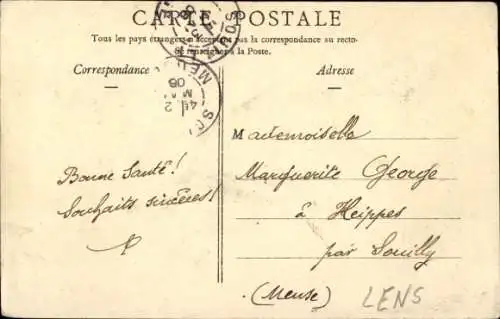 CARTE POSTALE
Tous les pays étrangers n'acceptent pas la correspondance au recto-
Se renseigner à la Poste.
Correspondance
Adresse
Bonne Santé!
Souhaits sincères!
Mademoiselle
Marguerite George
à Heippes
par Souilly
(Meuse)
LENS